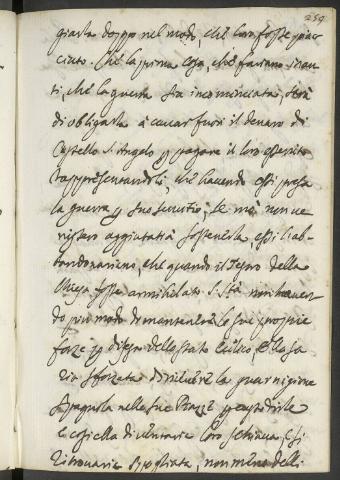 259
giarla doppo nel modo, che loro fosse piac
ciuto. Che la prima cosa, che fariano inan
ti, che la guerra sia incominciata, sarà
di obligarla à cavar fuori il denaro di
Castello S. Angelo p pagare il loro essercito
rappresentandoli, che havendo essi presa
la guerra p suo servitio, se mò non ve
nissero aggiutati à sostenerla essi l'ab-
bandonariano, che quando il Tesoro della
Chiesa fosse annihilato S. Stà non haven
do più modo di mantenere le sue proprie
forze p difesa dello stato Eccl.co, ella sa
ria sforzata di ricevere la guarnigione
Spagnola nelle sue Piazze p custodirle
e così ella diventaria loro schiava, e si
ritrovaria spogliata, non meno delli